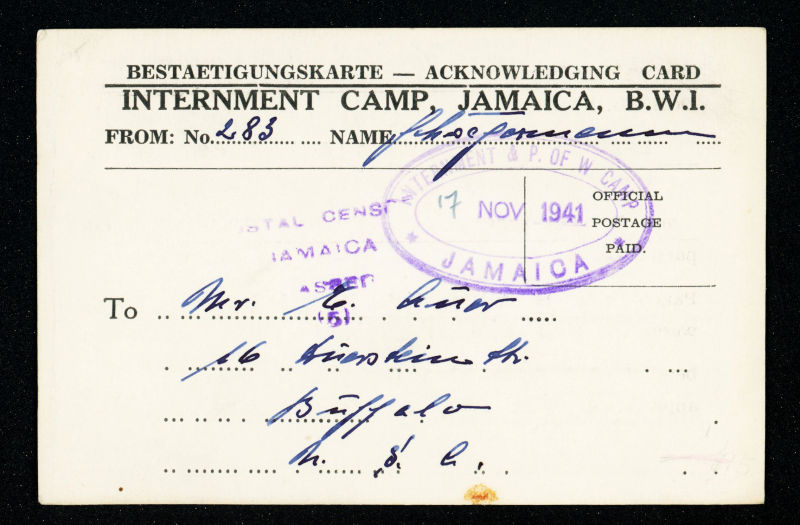 BESTAETIGUNGSKARTE — ACKNOWLEDGING CARD
INTERNMENT CAMP, JAMAICA, B.W.I.
FROM: No. 283 NAME
INTERNMENT & P. OF W CAMP
17 NOV 1941
JAMAICA
OFFICIAL
POSTAGE
PAID.
STAL CENSO
JAMAICA
(5)
To Mr. E. Auer
16
Buffalo